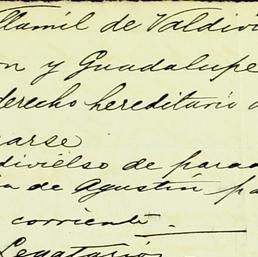 Illamil de Valdivi
on y Guadalupe
derecho hereditario
arse
divielso de parad
ia de Agustín pa
corriente
Legatario